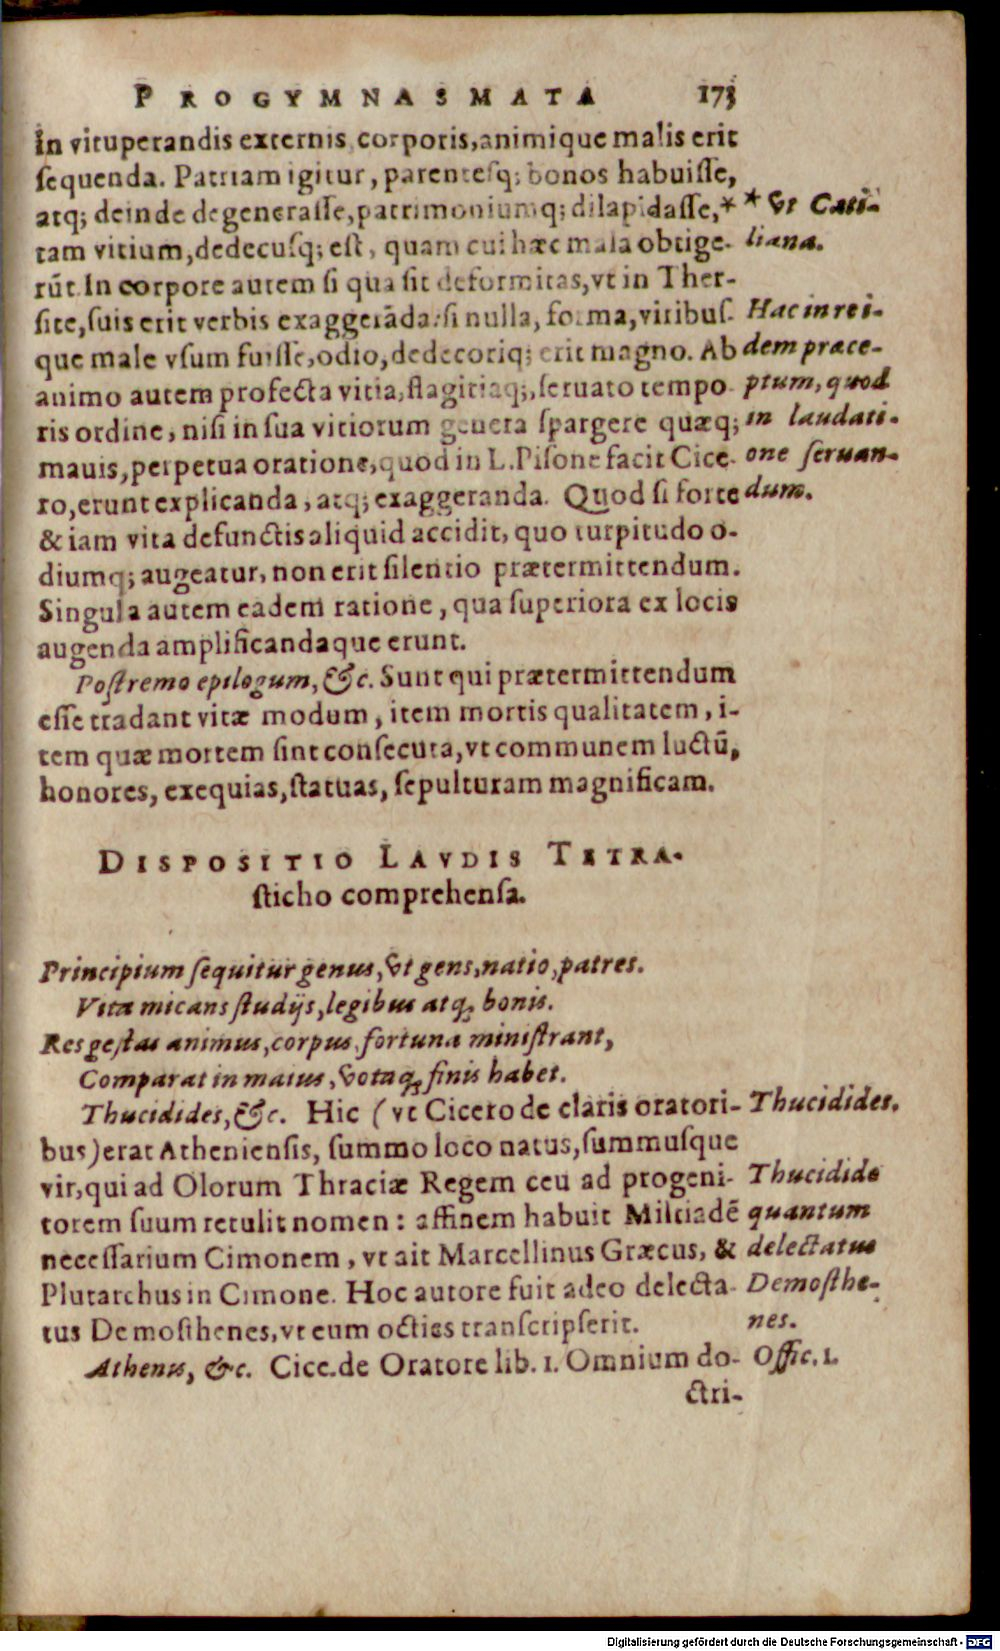 PROGYMNASMATA 173
In vituperandis externis, corporis, animique malis erit
sequenda. Patriam igitur, parentesq; bonos habuisse,
atq; deinde degenerasse, patrimoniumq; dilapidasse,*
tam vitium, dedecusq; est, quam cui hæc mala obtige-
rūt. In corpore autem si qua sit deformitas, vt in Ther-
site, suis erit verbis exaggerāda: si nulla, forma, viribus-
que male vsum fuisse, odio, dedecoriq; erit magno. Ab
animo autem profecta vitia, flagitiaq;, seruato tempo
ris ordine, nisi in sua vitiorum genera spargere quæq;
mauis, perpetua oratione, quod in L. Pisone facit Cice-
ro, erunt explicanda, atq; exaggeranda. Quod si forte
& iam vita defunctis aliquid accidit, quo turpitudo o-
diumq; augeatur, non erit silentio prætermittendum.
Singula autem eadem ratione, qua superiora ex locis
augenda amplificandaque erunt.
* Vt Cati-
liana.
Hac in rei-
dem præce-
ptum, quod
in laudati-
one seruan-
dum.
Postremo epilogum, &c. Sunt qui prætermittendum
esse tradant vitæ modum, item mortis qualitatem, i-
tem quæ mortem sint consecuta, vt communem luctū,
honores, exequias, statuas, sepulturam magnificam.
DISPOSITIO LAVDIS TETRA-
sticho comprehensa.
Principium sequitur genus, vt gens, natio, patres.
Vita micans studijs, legibus atq; bonis.
Res gestas animus, corpus, fortuna ministrant,
Comparat in maius, votaq; finis habet.
Thucidides, &c. Hic (vt Cicero de claris oratori-
bus) erat Atheniensis, summo loco natus, summusque
vir, qui ad Olorum Thraciæ Regem ceu ad progeni-
torem suum retulit nomen: affinem habuit Miltiadē
necessarium Cimonem, vt ait Marcellinus Græcus, &
Plutarchus in Cimone. Hoc autore fuit adeo delecta-
tus Demosthenes, vt eum octies transcripserit.
Athenis, &c. Cice. de Oratore lib. 1. Omnium do-
Thucidides.
Thucidide
quantum
delectatus
Demosthe-
nes.
Offic. 1.
ctri-
Digitalisierung gefördert durch die Deutsche Forschungsgemeinschaft - DFG